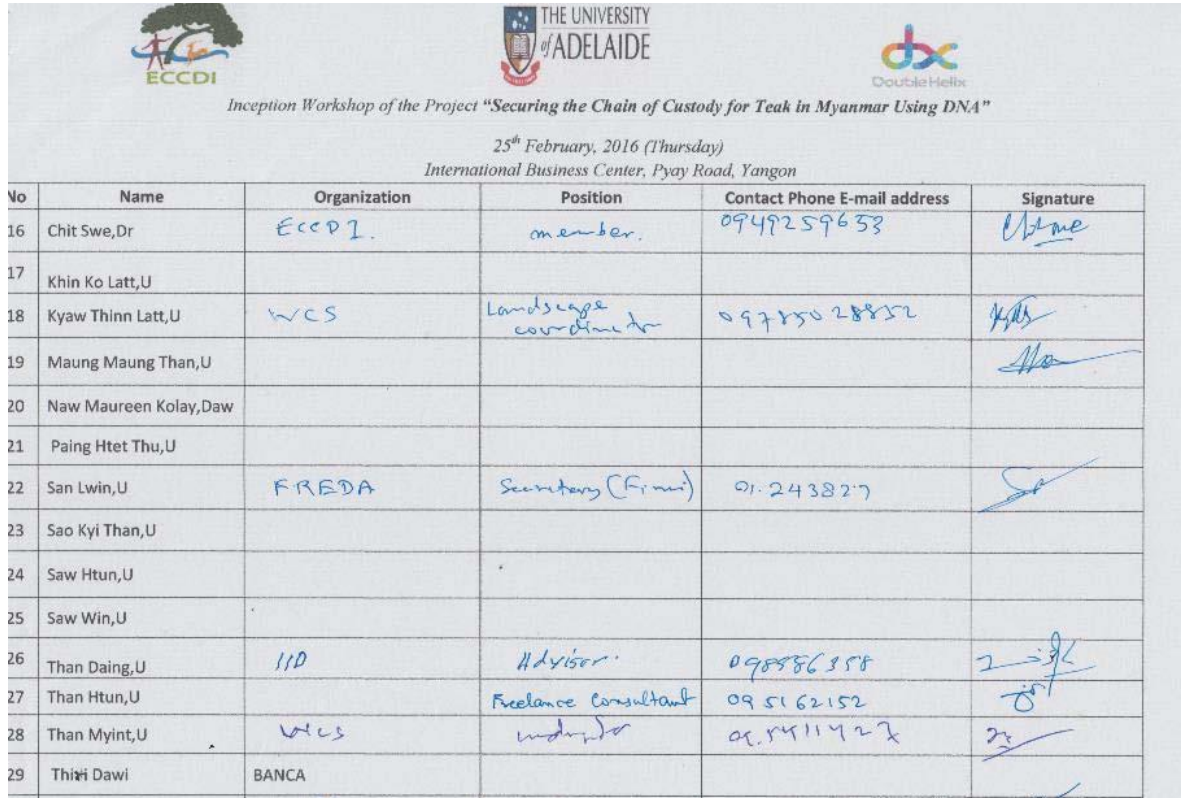 ECCDI
THE UNIVERSITY
of ADELAIDE
dx
DoubleHelix
Inception Workshop of the Project “Securing the Chain of Custody for Teak in Myanmar Using DNA”
25th February, 2016 (Thursday)
International Business Center, Pyay Road, Yangon
No Name Organization Position Contact Phone E-mail address Signature
16 Chit Swe,Dr ECCDI. member. 0949259653
17 Khin Ko Latt,U
18 Kyaw Thinn Latt,U WCS Landscape coordinator 09785028852
19 Maung Maung Than,U
20 Naw Maureen Kolay,Daw
21 Paing Htet Thu,U
22 San Lwin,U FREDA Secretary 01.243827
23 Sao Kyi Than,U
24 Saw Htun,U
25 Saw Win,U
26 Than Daing,U IID Advisor.
27 Than Htun,U Freelance Consultant 095162152
28 Than Myint,U WCS
29 Thiri Dawi BANCA